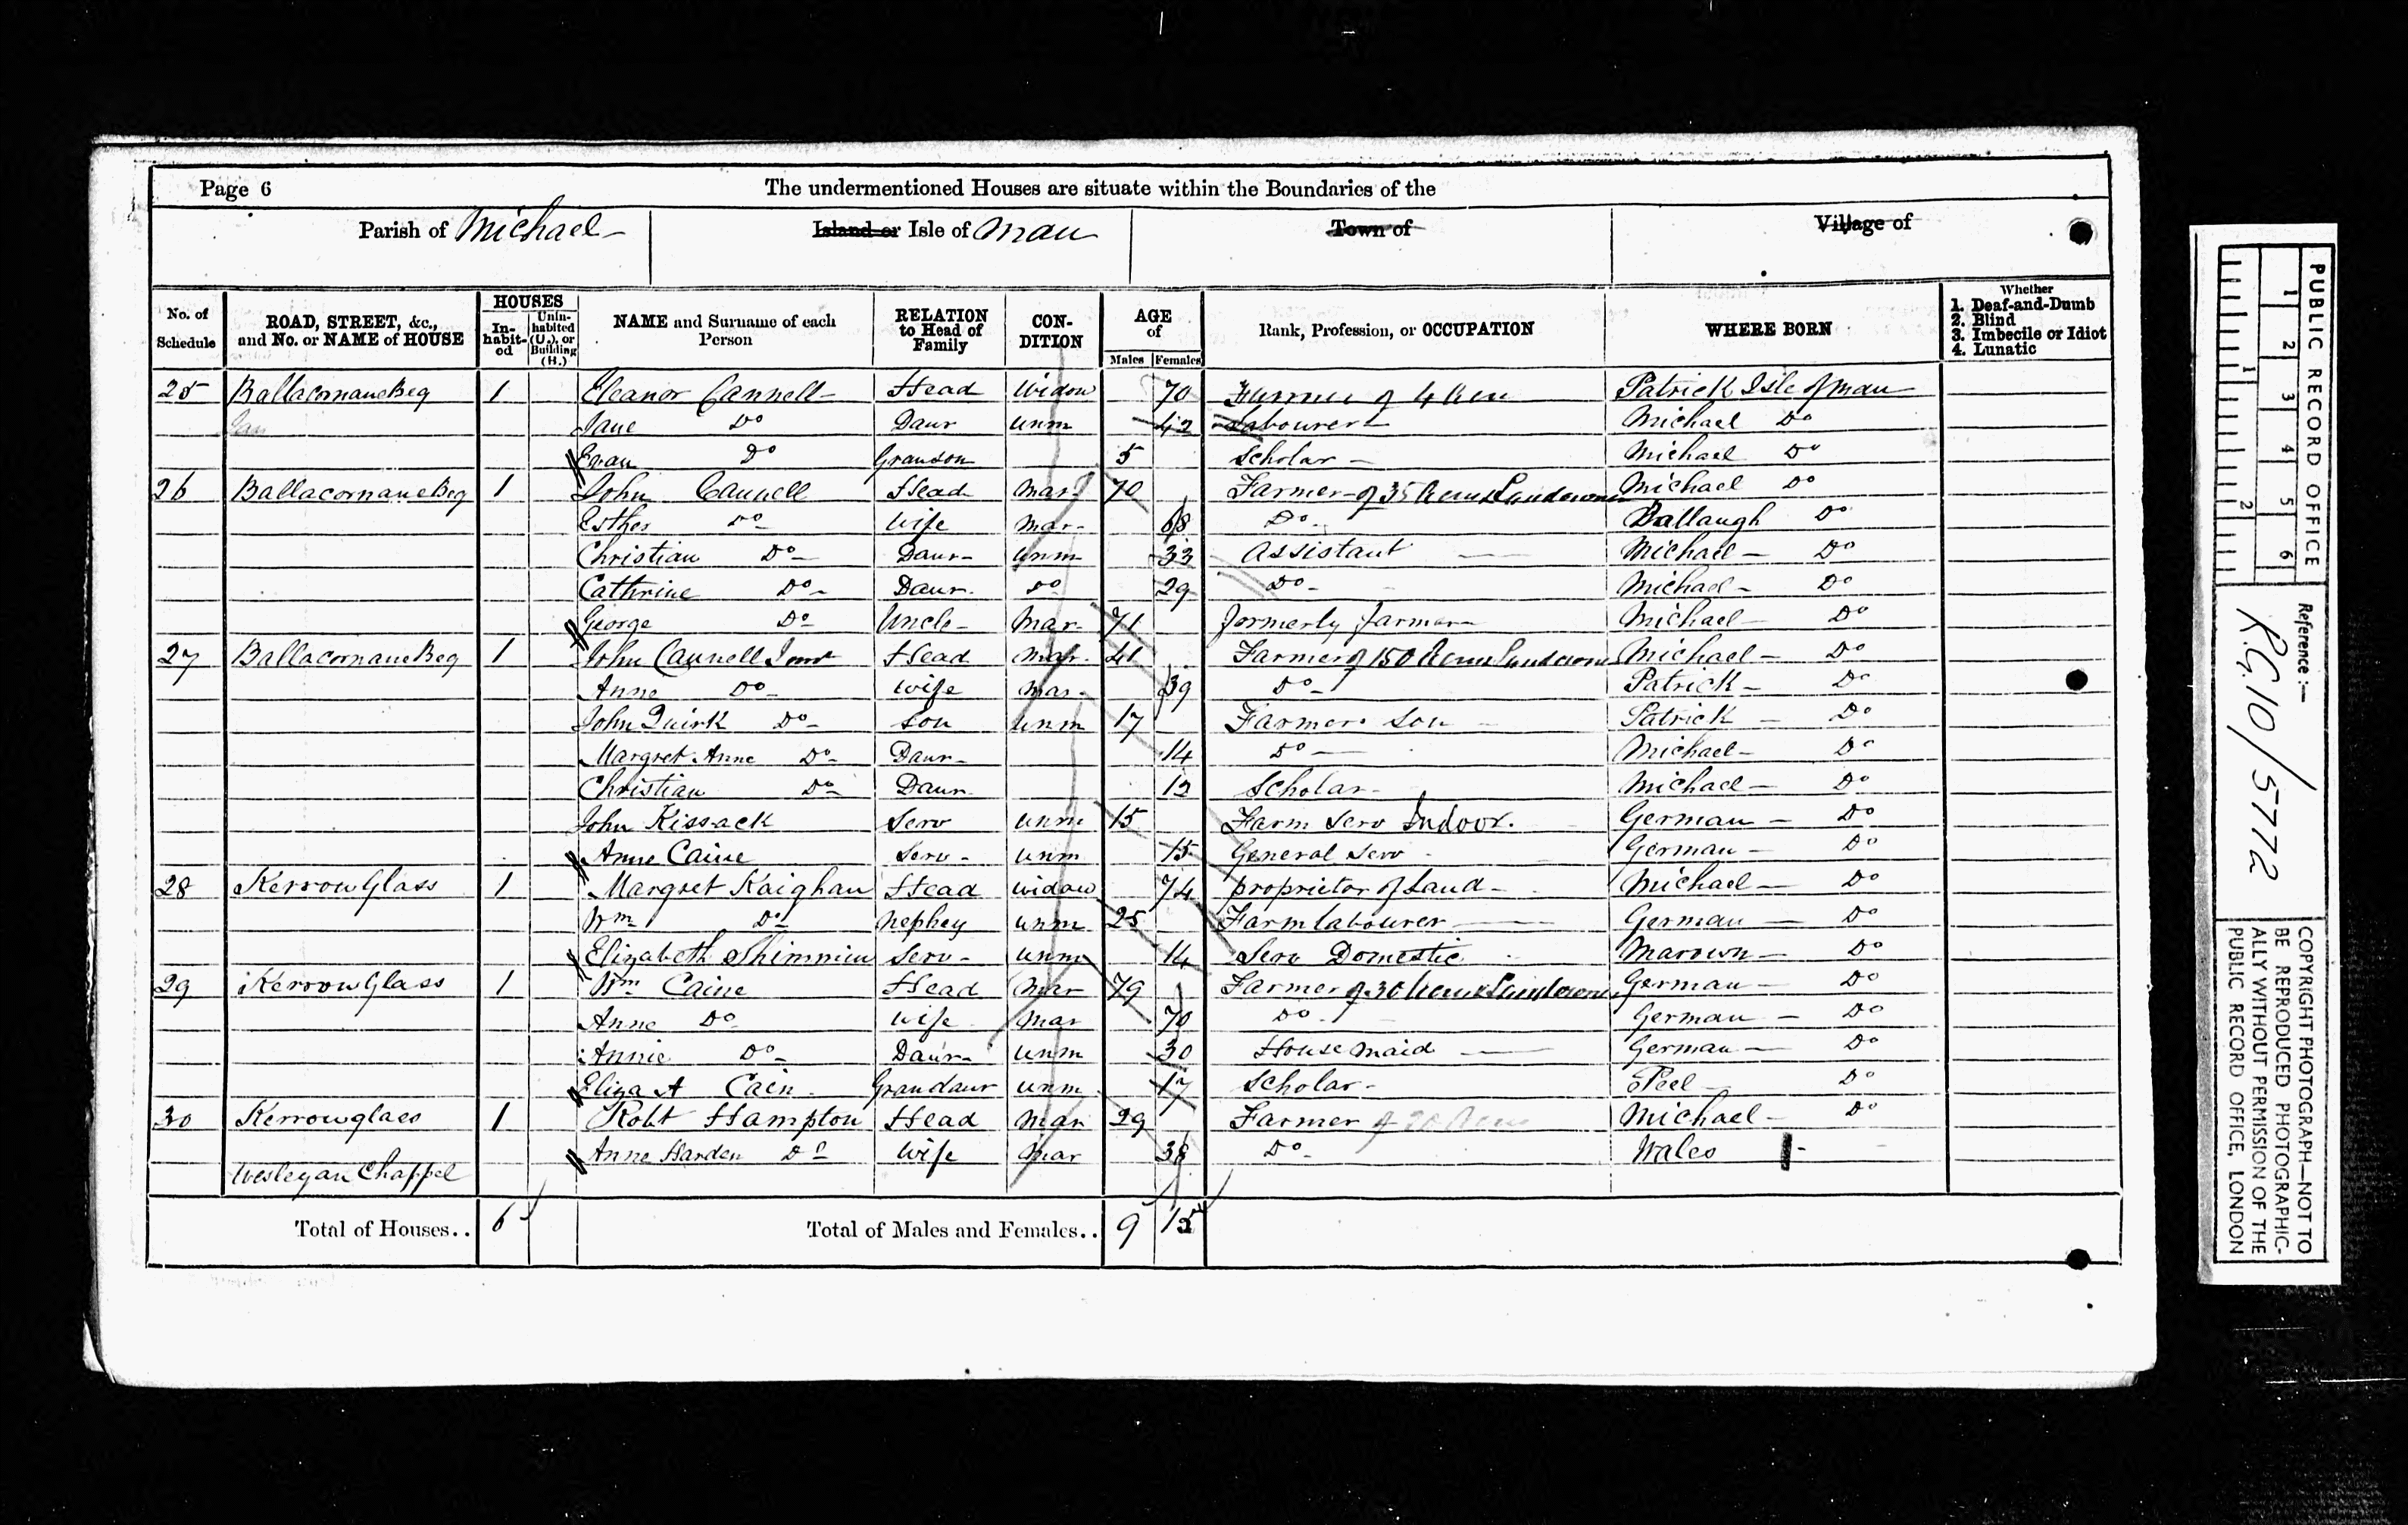 Page 6 The undermentioned Houses are situate within the Boundaries of the
Parish of Michael Island or Isle of Man Town of Village of
No. of Schedule ROAD, STREET, &c., and No. or NAME of HOUSE HOUSES In-habit-ed Unin-habited (U.), or Building (B.) NAME and Surname of each Person RELATION to Head of Family CON-DITION AGE of Males Females Rank, Profession, or OCCUPATION WHERE BORN Whether 1. Deaf-and-Dumb 2. Blind 3. Imbecile or Idiot 4. Lunatic
25 BallacornaneBeg 1 Eleanor Cannell Head Widow 70 Farmer of 4 Acres Patrick Isle of Man
Jane Do Daur unm 42 Labourer Michael Do
Evan Do Grandson 5 Scholar Michael Do
26 BallacornaneBeg 1 John Cannell Head Mar 70 Farmer of 35 Acres Landowner Michael Do
Esther Do Wife Mar 68 Do Ballaugh Do
Christian Do Daur unm 33 Assistant Michael Do
Cathrine Do Daur Do 29 Do Michael Do
George Do Uncle Mar 71 formerly farmer Michael Do
27 BallacornaneBeg 1 John Cannell Junr Head Mar 41 Farmer of 150 Acres Landowner Michael Do
Anne Do Wife Mar 39 Do Patrick Do
John Quirk Do Son unm 17 Farmers Son Patrick Do
Margret Anne Do Daur 14 Do Michael Do
Christian Do Daur 12 Scholar Michael Do
John Kissack Serv unm 15 Farm Serv Indoor. German Do
Anne Caine Serv unm 15 General Serv German Do
28 Kerrow Glass 1 Margret Kaighan Head widow 74 proprietor of Land Michael Do
Wm Do Nephey unm 25 Farm labourer German Do
Elizabeth Shimmin Serv unm 14 Serv Domestic Marown Do
29 Kerrow Glass 1 Wm Caine Head Mar 79 Farmer of 30 Acres Landowner German Do
Anne Do Wife Mar 70 Do German Do
Annie Do Daur unm 30 House Maid German Do
Eliza A Cain Grandaur unm 17 Scholar Peel Do
30 Kerrowglass 1 Robt Hampton Head Mar 29 Farmer of 20 Acres Michael Do
Anne Harden Do Wife Mar 38 Do Wales
Wesleyan Chappel
Total of Houses.. 6 Total of Males and Females.. 9 15
PUBLIC RECORD OFFICE
1 2 3 4 5 6
1 2
Reference:—
R.G. 10/5772
COPYRIGHT PHOTOGRAPH—NOT TO
BE REPRODUCED PHOTOGRAPHIC-
ALLY WITHOUT PERMISSION OF THE
PUBLIC RECORD OFFICE, LONDON